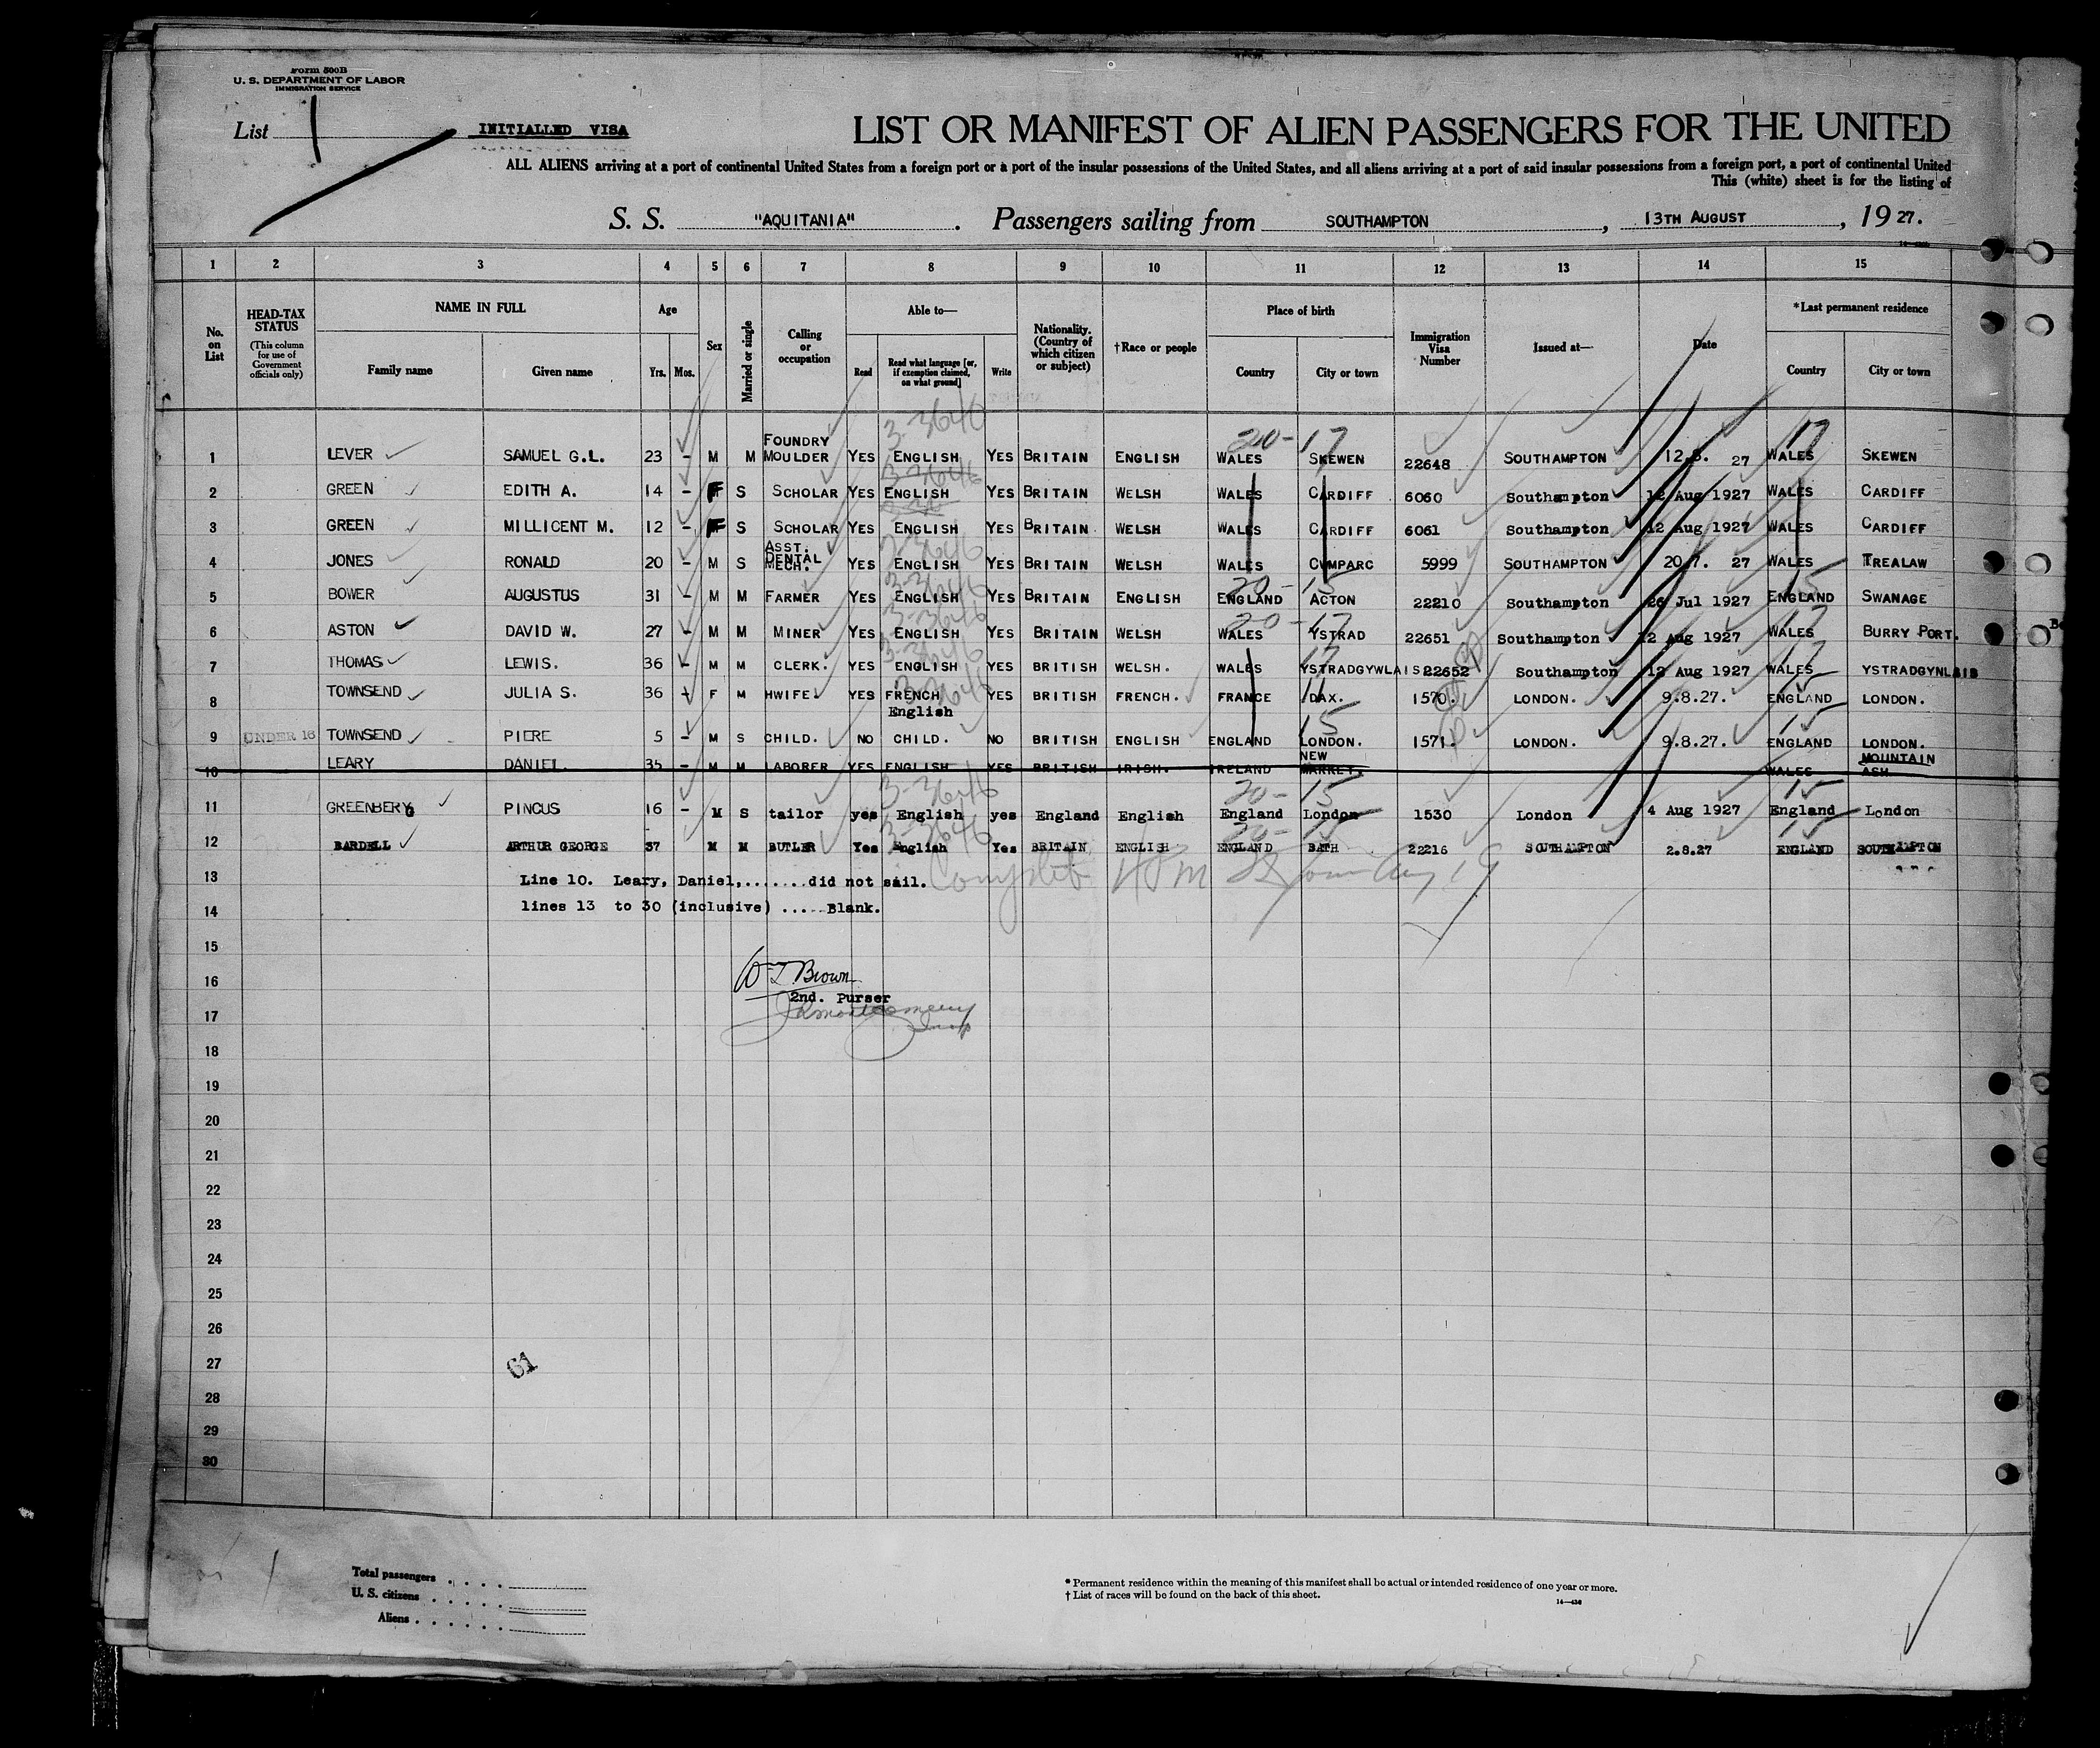 Form 500B
U. S. DEPARTMENT OF LABOR
IMMIGRATION SERVICE
List 1
INITIALLED VISA
LIST OR MANIFEST OF ALIEN PASSENGERS FOR THE UNITED
ALL ALIENS arriving at a port of continental United States from a foreign port or a port of the insular possessions of the United States, and all aliens arriving at a port of said insular possessions from a foreign port, a port of continental United
This (white) sheet is for the listing of
S. S. "AQUITANIA". Passengers sailing from SOUTHAMPTON, 13TH AUGUST, 1927.
1 2 3 4 5 6 7 8 9 10 11 12 13 14 15
No. on List
HEAD-TAX STATUS (This column for use of Government officials only)
NAME IN FULL
Family name Given name
Age
Yrs. Mos.
Sex
Married or single
Calling or occupation
Able to—
Read Read what language [or, if exemption claimed, on what ground] Write
Nationality. (Country of which citizen or subject)
†Race or people
Place of birth
Country City or town
Immigration Visa Number
Issued at—
Date
*Last permanent residence
Country City or town
1 LEVER SAMUEL G.L. 23 - M M FOUNDRY MOULDER YES ENGLISH YES BRITAIN ENGLISH WALES SKEWEN 22648 SOUTHAMPTON 12.8. 27 WALES SKEWEN
2 GREEN EDITH A. 14 - F S SCHOLAR YES ENGLISH YES BRITAIN WELSH WALES CARDIFF 6060 Southampton 12 Aug 1927 WALES CARDIFF
3 GREEN MILLICENT M. 12 - F S SCHOLAR YES ENGLISH YES BRITAIN WELSH WALES CARDIFF 6061 Southampton 12 Aug 1927 WALES CARDIFF
4 JONES RONALD 20 - M S ASST. DENTAL MECH. YES ENGLISH YES BRITAIN WELSH WALES CWMPARC 5999 SOUTHAMPTON 20.7. 27 WALES TREALAW
5 BOWER AUGUSTUS 31 - M M FARMER YES ENGLISH YES BRITAIN ENGLISH ENGLAND ACTON 22210 Southampton 26 Jul 1927 ENGLAND SWANAGE
6 ASTON DAVID W. 27 - M M MINER YES ENGLISH YES BRITAIN WELSH WALES YSTRAD 22651 Southampton 12 Aug 1927 WALES BURRY PORT.
7 THOMAS LEWIS. 36 - M M CLERK. YES ENGLISH YES BRITISH WELSH. WALES YSTRADGYWLAIS 22652 Southampton 12 Aug 1927 WALES YSTRADGYNLAIS
8 TOWNSEND JULIA S. 36 - F M HWIFE YES FRENCH English YES BRITISH FRENCH. FRANCE DAX. 1570. LONDON. 9.8.27. ENGLAND LONDON.
9 UNDER 16 TOWNSEND PIERE 5 - M S CHILD. NO CHILD. NO BRITISH ENGLISH ENGLAND LONDON. 1571. LONDON. 9.8.27. ENGLAND LONDON.
10 LEARY DANIEL. 35 - M M LABORER YES ENGLISH YES BRITISH IRISH. IRELAND NEW MARKET. WALES MOUNTAIN ASH
11 GREENBERG PINCUS 16 - M S tailor yes English yes England English England London 1530 London 4 Aug 1927 England London
12 BARDELL ARTHUR GEORGE 37 M M BUTLER Yes English Yes BRITAIN ENGLISH ENGLAND BATH 22216 SOUTHAMPTON 2.8.27 ENGLAND SOUTHAMPTON
13 Line 10. Leary, Daniel,.......did not sail.
14 lines 13 to 30 (inclusive) .....Blank.
15
16 W T Brown
2nd. Purser
17
18
19
20
21
22
23
24
25
26
27 61
28
29
30
Total passengers
U. S. citizens
Aliens
* Permanent residence within the meaning of this manifest shall be actual or intended residence of one year or more.
† List of races will be found on the back of this sheet.
14—430